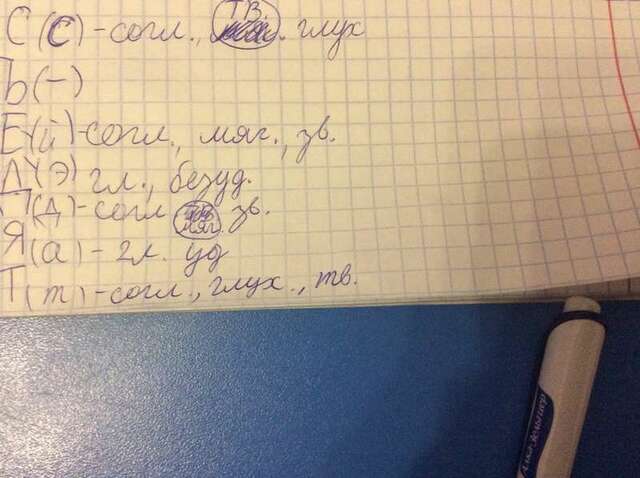 С (с) - согл., тв. глух
Ъ (-)
Е (й) - согл., мяг., зв.
(э) гл., безуд.
Д (д) - согл мяг. зв.
Я (а) - гл. уд
Т (т) - согл., глух., тв.